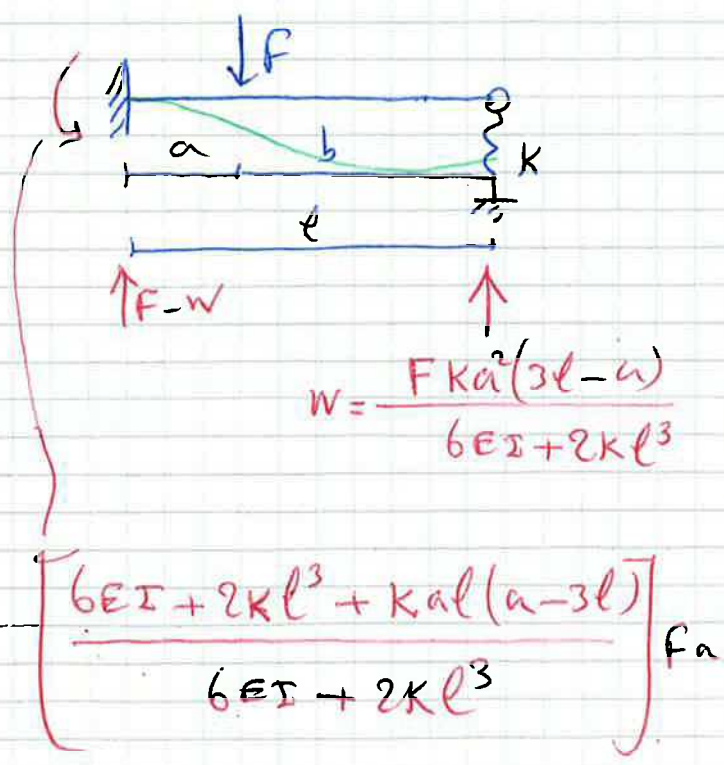 F
a b K
ℓ
F-W
W = FKa²(3ℓ-a) / (6EI+2Kℓ³)
[(6EI + 2Kℓ³ + Kaℓ(a-3ℓ)) / (6EI + 2Kℓ³)] Fa